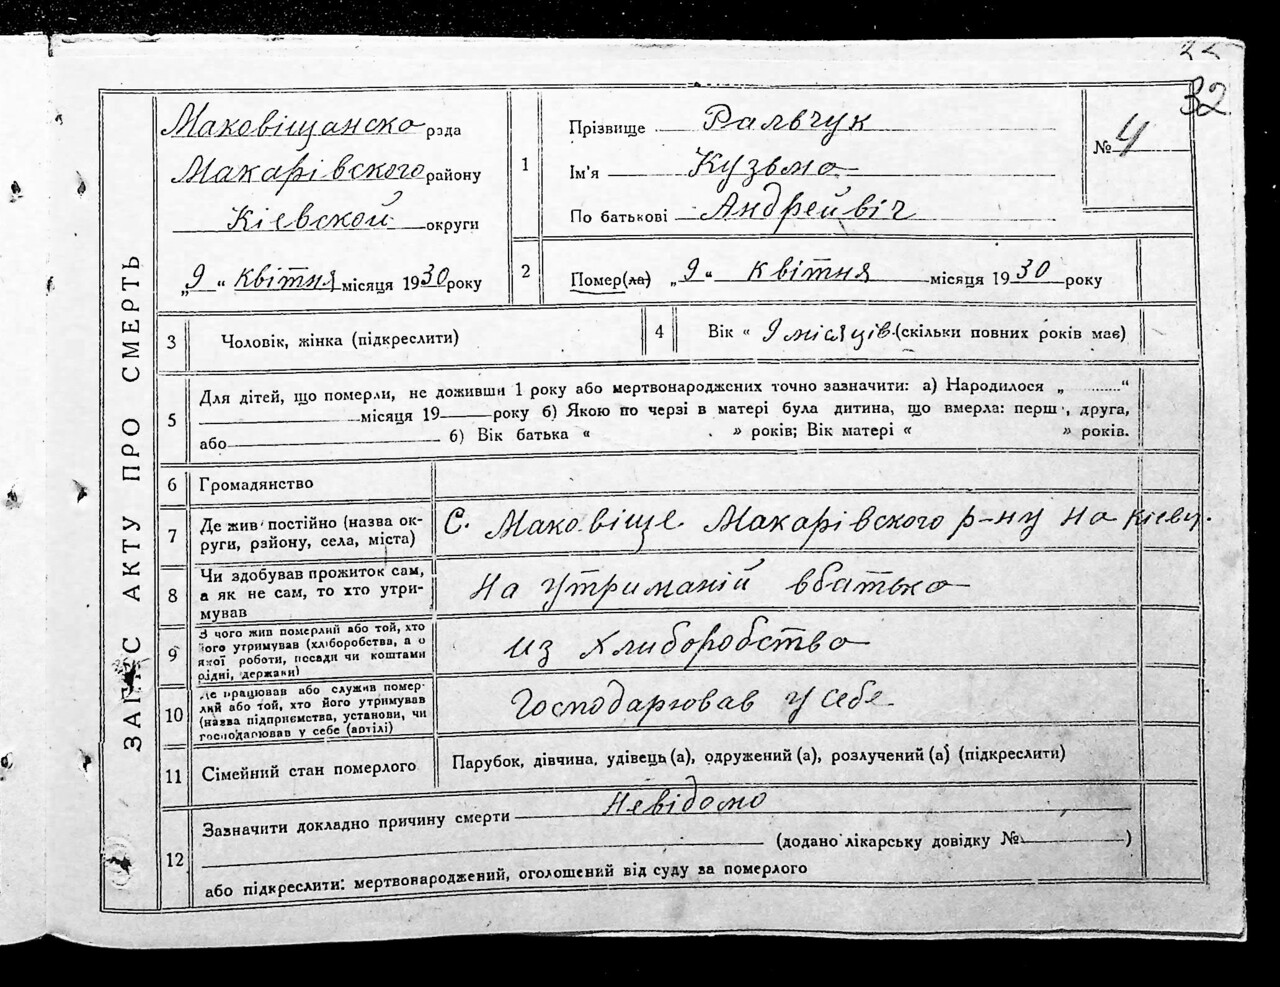 32
ЗАГС АКТУ ПРО СМЕРТЬ
Маковіщанска рада
Макарівского району
Кієвской округи
„9“ квітня місяця 1930 року
1
Прізвище Ральчук
Ім'я Кузьма
По батькові Андрейвіч
№ 4
2
Помер(ла) „9“ квітня місяця 1930 року
3
Чоловік, жінка (підкреслити)
4
Вік « 9 місяців (скільки повних років має)
5
Для дітей, що померли, не доживши 1 року або мертвонароджених точно зазначити: а) Народилося „ ......“
місяця 19 року б) Якою по черзі в матері була дитина, що вмерла: перш , друга,
або б) Вік батька « » років; Вік матері « » років.
6
Громадянство
7
Де жив постійно (назва ок-
руги, району, села, міста)
С. Маковіще Макарівского р-ну на Кієвщ.
8
Чи здобував прожиток сам,
а як не сам, то хто утри-
мував
на утриманій вбатька
9
З чого жив померлий або той, хто
його утримував (хліборобства, а о
якої роботи, посади чи коштами
рідні, держави)
из хлиборобства
10
Де працював або служив помер-
лий або той, хто його утримував
(назва підприємства, установи, чи
господарював у себе (артілі)
Господарював у себе
11
Сімейний стан померлого
Парубок, дівчина, удівець (а), одружений (а), розлучений (а) (підкреслити)
12
Зазначити докладно причину смерти Невідомо
(додано лікарську довідку № )
або підкреслити: мертвонароджений, оголошений від суду за померлого